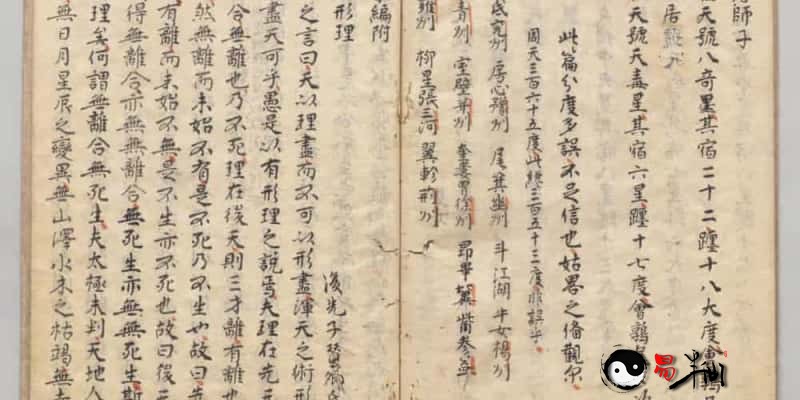 師子
天號八奇星其宿二十二躔十八大度會
居
天號天毒星其宿六星躔十七度會鶉
此篇分度多誤不足信也姑畧之備觀尓
周天三百六十五度此總三百五十三度非誤乎
氐兖州 房心豫州 尾箕幽州 斗江湖 牛女楊州
青州 室壁并州 奎婁胃徐州 昴畢冀 觜參益
雍州 柳星張三河 翼軫荊州
編附
形理
後先子
之言曰天以理盡而不可以形盡渾天之術形
盡天可乎愚是以有形理之說焉夫理在先天
合無離也乃不死理在後天則三才離有離也
然無離而未始不有是不死乃不生也故曰
有離而未始不無是不生亦不死也故曰後天
得無離合亦無無離合無死生亦無無死生斯
理矣何謂無離合無死生夫太極未判天地人
無日月星辰之變異無山澤水木之枯竭無
易